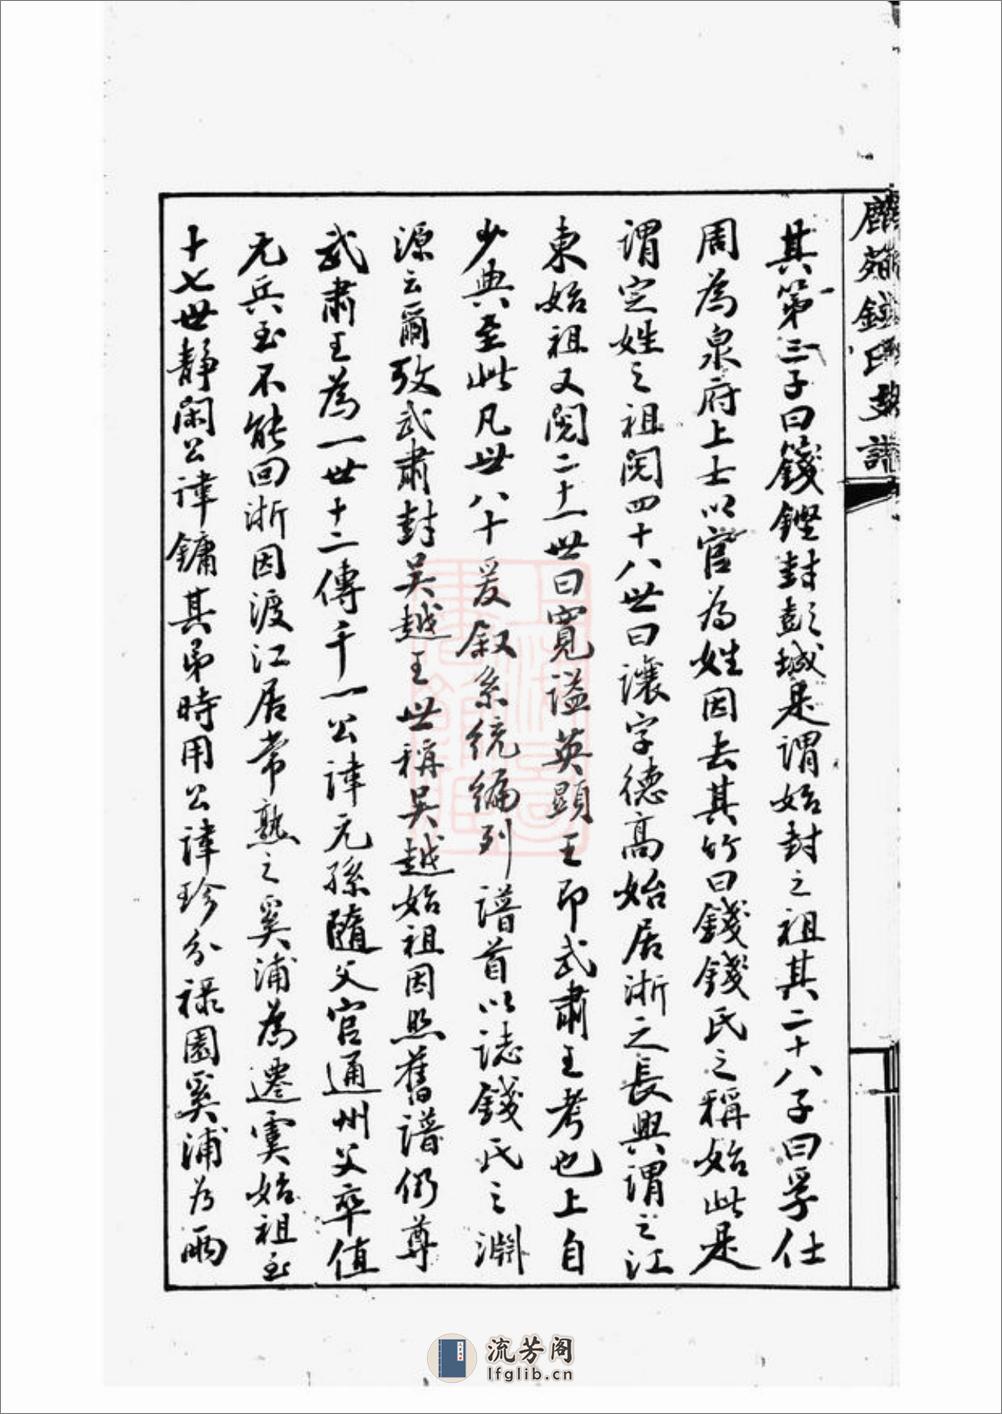 其第三子曰籛鏗封彭城是謂始封之祖其二十八子曰孚仕
周為泉府上士以官為姓因去其竹曰錢錢氏之稱始此是
謂定姓之祖閱四十八世曰讓字德高始居浙之長興謂之江
東始祖又閱二十一世曰寬謚英顯王即武肅王考也上自
少典至此凡世八十爰叙系統編列譜首以誌錢氏之淵
源云爾攷武肅封吳越王世稱吳越始祖因照舊譜仍尊
武肅王為一世十二傳千一公諱元孫隨父官通州父卒值
元兵至不能回浙因渡江居常熟之奚浦為遷虞始祖至
十七世靜閑公諱鏞其弟時用公諱珍分祿園奚浦為兩
流芳阁
lfglib.cn